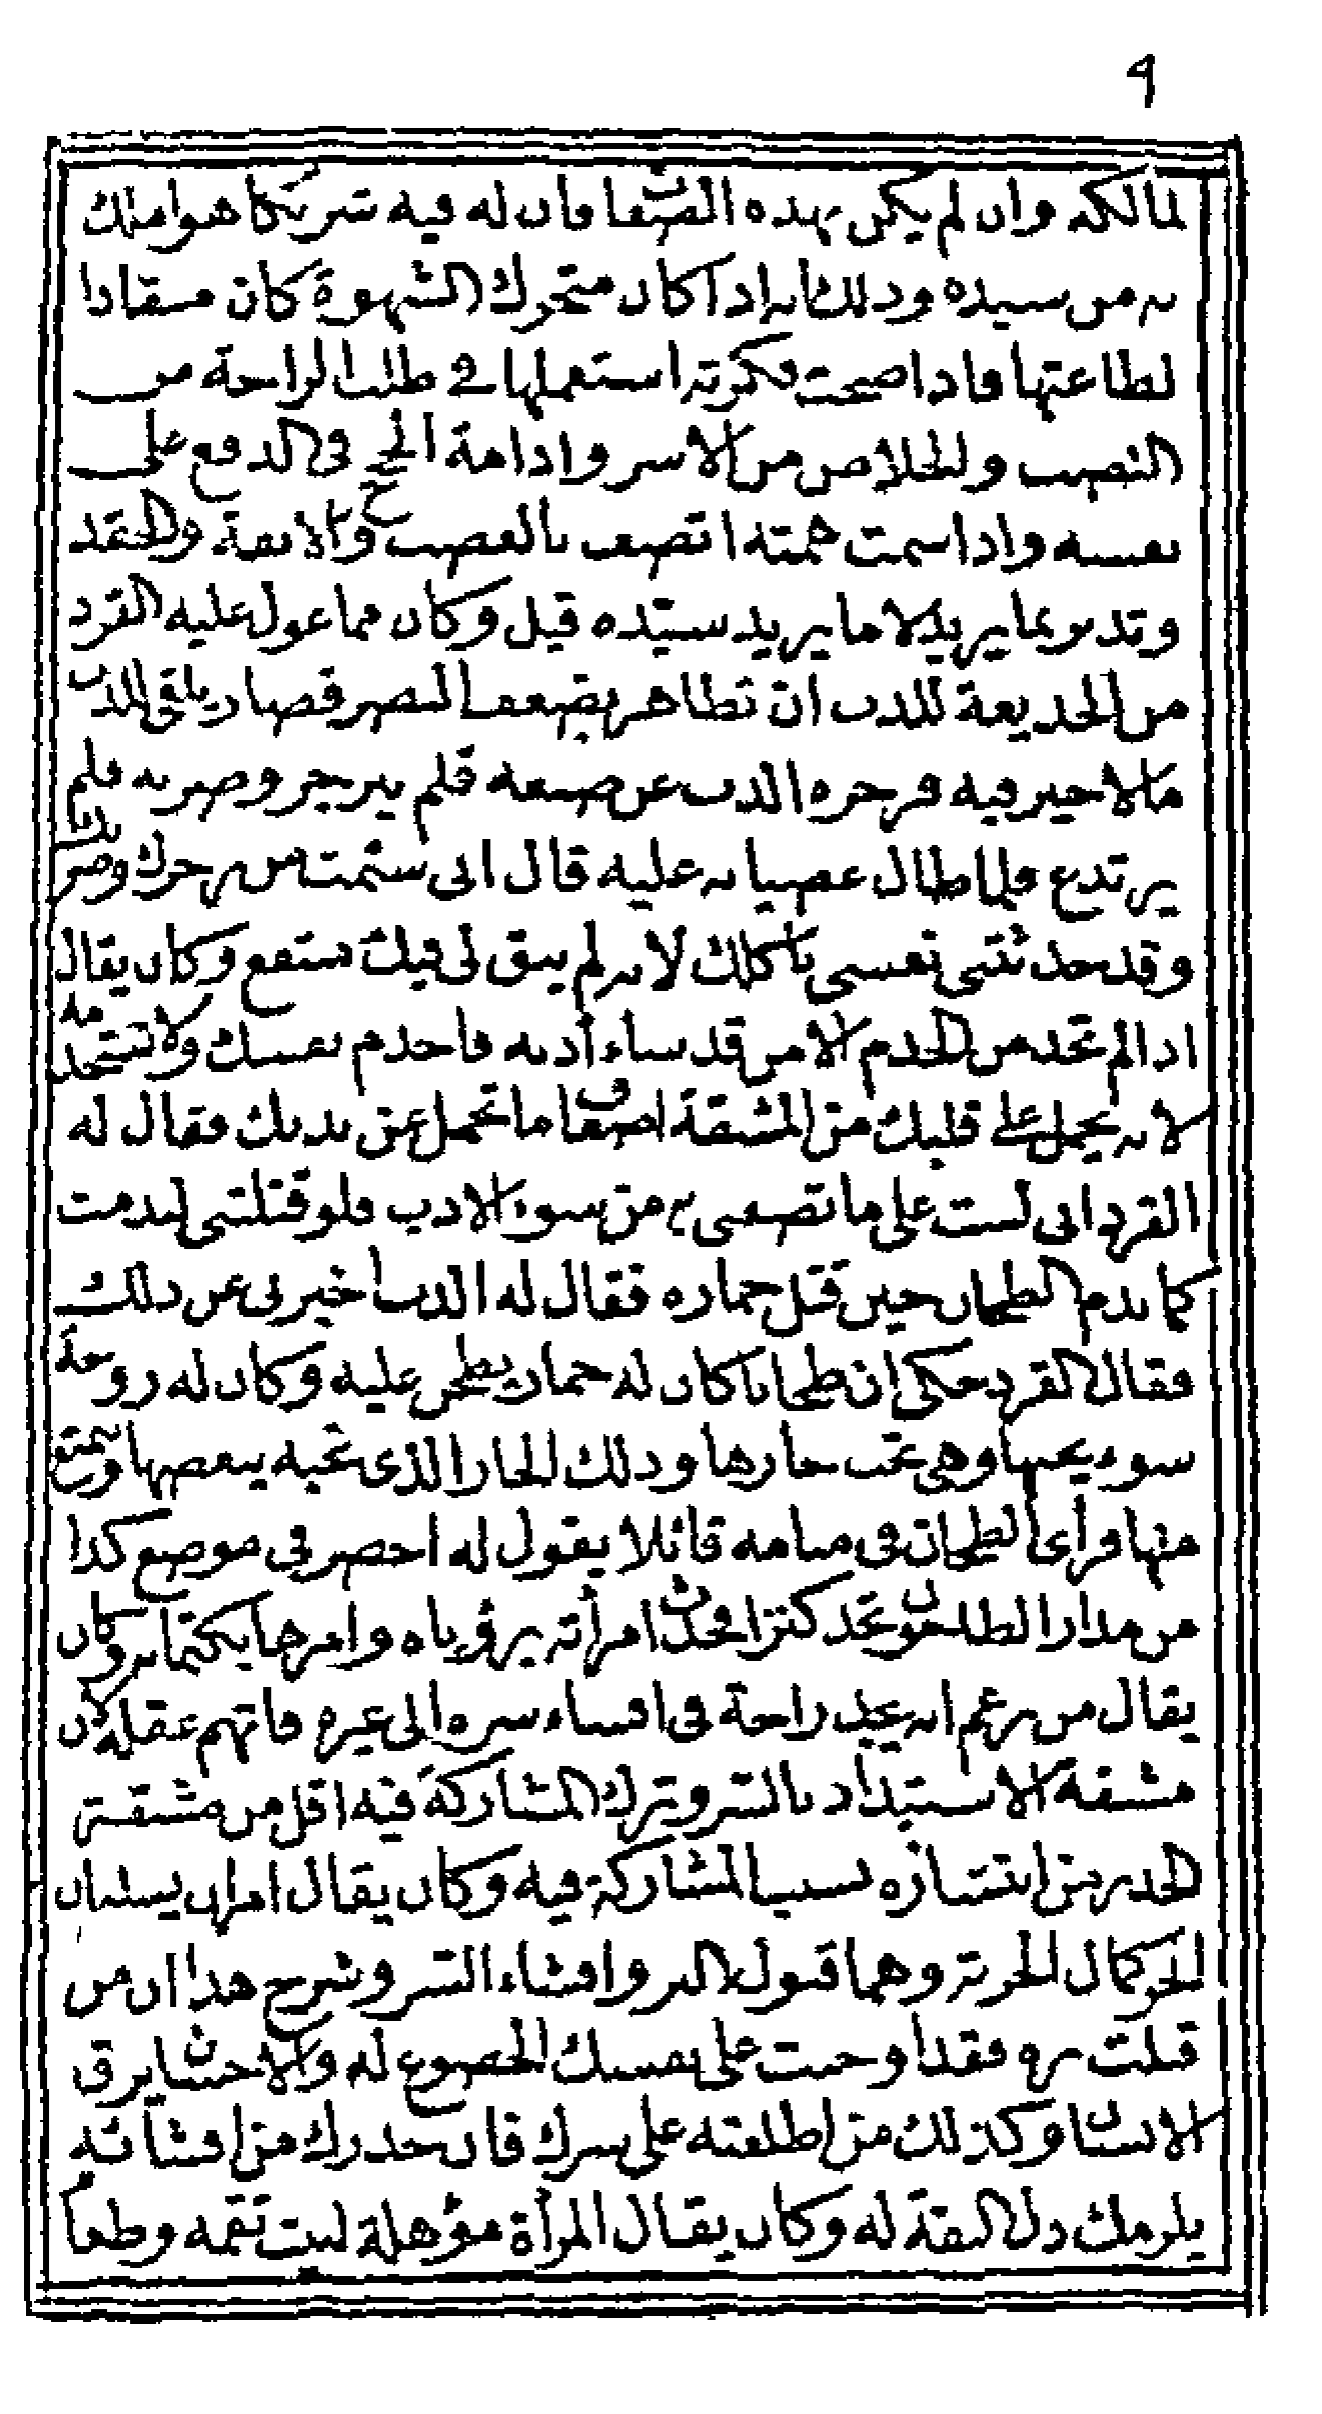 ٩
لمالكه وان لم يكن بهذه الصفات فان له فيه شريكا هو املك
به من سيده وذلك انه اذا كان متحرك الشهوة كان منقادا
لطاعتها فاذا صحت فكرته استعملها في طلب الراحة من
النصب والخلاص من الاسر واذا هـة الحج في الدفع على
نفسه واذا سمت همته اتصف بالغضب والانفة والحقد
وتدمر بما يريد لا ما يريد سيده قيل وكان مما عول عليه القرد
من الخديعة للدب ان تظاهر بضعف البصر فصار يلقى للدب
ما لا خير فيه فزجره الدب عن صنعه فلم ينزجر وضربه فلم
يرتدع فلما طال عصيانه عليه قال اني سئمت من زجرك وضربك
وقد حدثتني نفسي باكلك لانه لم يبق لي فيك منتفع وكان يقال
اذا لم تجد من الخدم الا من قد ساء أدبه فاخدم نفسك ولا تستخدمه
لانه يحمل على قلبك من المشقة اضعاف ما تحمل عن بدنك فقال له
القرد اني لست على ما تصفني به من سوء الادب ولو قتلتني لندمت
كما ندم الطحان حين قتل حماره فقال له الدب اخبرني عن ذلك
فقال القرد حكى ان طحانا كان له حمار يطحن عليه وكان له زوجة
سوء يحبها وهي تحب جارها وذلك الجار الذي تحبه يبغضها ويمتنع
منها فرأى الطحان في منامه قائلا يقول له احضر في موضع كذا
من مدار الطاحون تجد كنزا فحدث امرأته برؤياه وامرها بكتمانه وكان
يقال من زعم انه يجد راحة في افشاء سره الى غيره فاتهم عقله لان
مشقة الاستبداد بالسر وترك المشاركة فيه اقل من مشقة
الحذر من انتشاره بسبب المشاركة فيه وكان يقال امران يسلبان
الحر كمال الحرية وهما قبول البر وافشاء السر وشرح هذا ان من
قبلت بره فقد اوجبت على نفسك الخضوع له والاحسان يرق
الانسان وكذلك من اطلعته على سرك فان حذرك من افشائه
يلزمك ذل التقية له وكان يقال المرأة مؤهلة لبيت تقمه وطعام